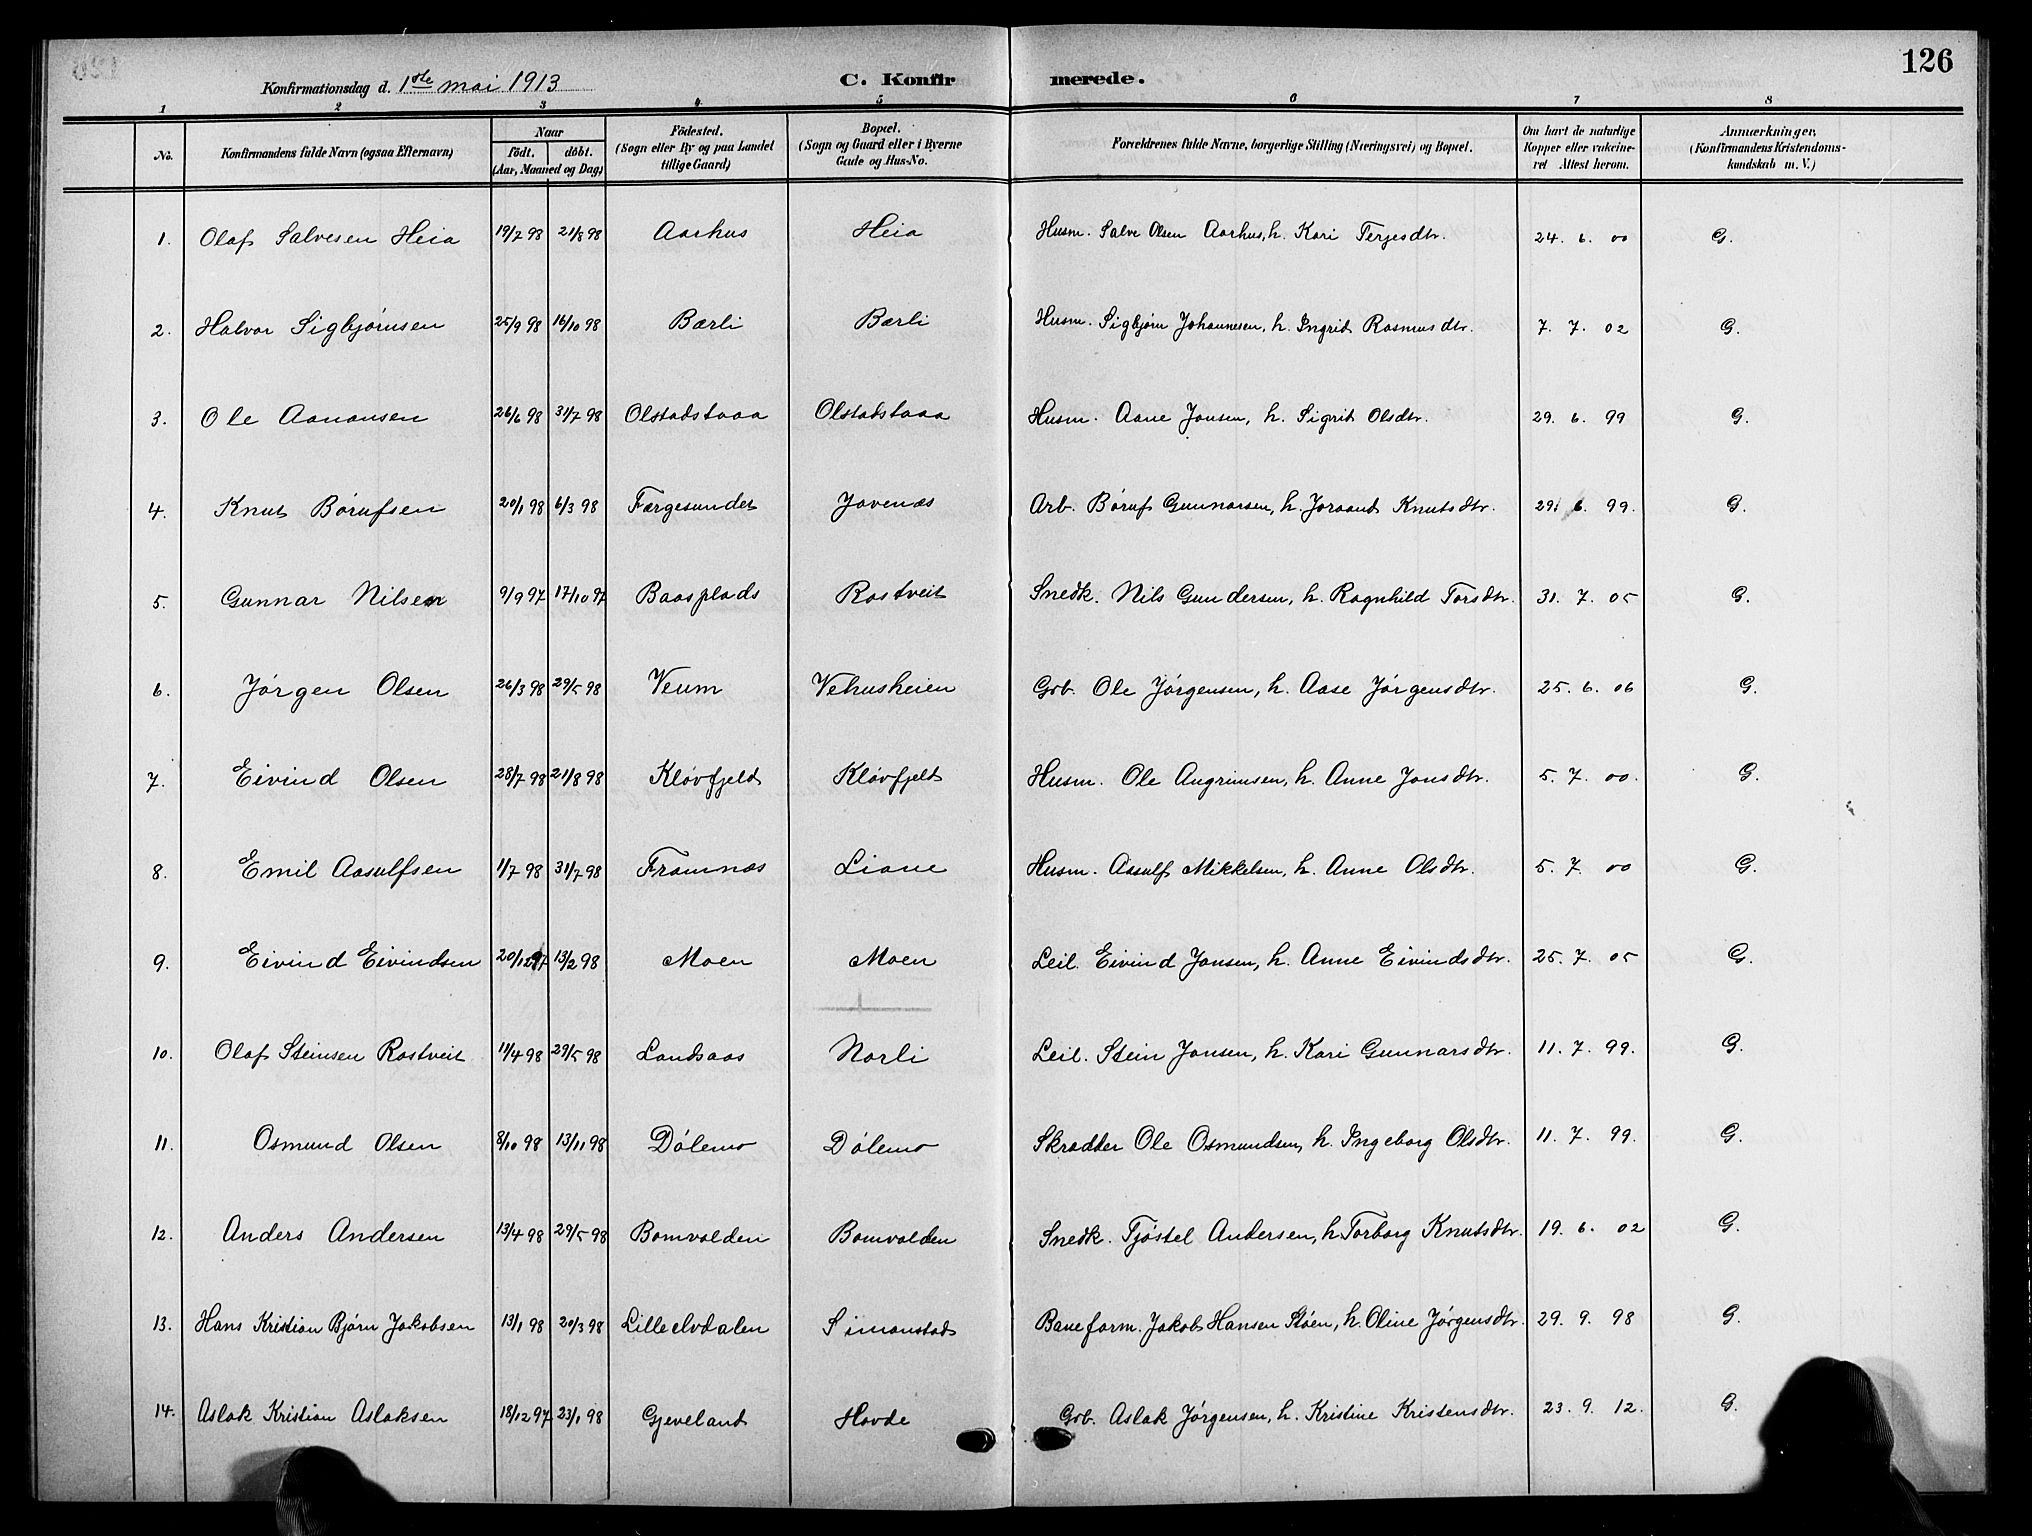 126
Konfirmationsdag d. 1ste mai 1913 C. Konfirmerede.
1 2 3 4 5 6 7 8
No. Konfirmandens fulde Navn (ogsaa Efternavn) Naar født. døbt. (Aar, Maaned og Dag) Fødested. (Sogn eller By og paa Landet tillige Gaard) Bopæl. (Sogn og Gaard eller i Byerne Gade og Hus-No. Forældrenes fulde Navne, borgerlige Stilling (Næringsvei) og Bopæl. Om havt de naturlige Kopper eller vakcineret Attest herom. Anmærkninger. (Konfirmandens Kristendomskundskab m. V.)
1. Olaf Salvesen Heia 19/7 98 21/8 98 Aarhus Heia Husm. Salve Olsen Aarhus, h. Kari Terjesdtr. 24. 6. 00 G.
2. Halvor Sigbjørnsen 25/9 98 16/10 98 Bærli Bærli Husm. Sigbjørn Johannesen, h. Ingrid Rasmusdtr. 7. 7. 02 G.
3. Ole Aanansen 26/6 98 31/7 98 Olstadstaaa Olstadstaaa Husm. Aane Jonsen, h. Sigrid Olsdtr. 29. 6. 99 G.
4. Knut Børufsen 20/1 98 6/3 98 Færgesundet Jovenæs Arb. Børuf Gunnarsen, h. Joraand Knutsdtr. 29. 6. 99. G.
5. Gunnar Nilsen 9/9 97 17/10 97 Baasplads Rostveit Snedk. Nils Gundersen, h. Ragnhild Torsdtr. 31. 7. 05 G.
6. Jørgen Olsen 26/3 98 29/5 98 Veum Vehusheien Grb. Ole Jørgensen, h. Aase Jørgensdtr. 25. 6. 06 G.
7. Eivind Olsen 28/7 98 21/8 98 Kløvfjeld Kløvfjelt Husm. Ole Angrimsen, h. Anne Jonsdtr. 5. 7. 00. G.
8. Emil Aasulfsen 1/7 98 31/7 98 Framnæs Liane Husm. Aasulf Mikkelsen, h. Anne Olsdtr. 5. 7. 00 G.
9. Eivind Eivindsen 20/12 97 13/2 98 Moen Moen Leil. Eivind Jonsen, h. Anne Eivindsdtr. 25. 7. 05 G.
10. Olaf Steinsen Rostveit 11/4 98 29/5 98 Landsaas Norli Leil. Stein Jonsen, h. Kari Gunnarsdtr. 11. 7. 99. G.
11. Osmund Olsen 8/10 98 13/11 98 Dølemo Dølemo Skrædder Ole Osmundsen, h. Ingeborg Olsdtr. 11. 7. 99. G.
12. Anders Andersen 13/4 98 29/5 98 Bomvolden Bomvolden Snedk. Tjøstel Andersen, h. Torborg Knutsdtr. 19. 6. 02 G.
13. Hans Kristian Bjørn Jakobsen 13/1 98 20/3 98 Lilleelvdalen Simonstad Baneform. Jakob Hansen Støen, h. Oline Jørgensdtr. 29. 9. 98 G.
14. Aslak Kristian Aslaksen 18/12 97 23/1 98 Gjeveland Hovde Grb. Aslak Jørgensen, h. Kristine Kristensdtr. 23. 9. 12. G.